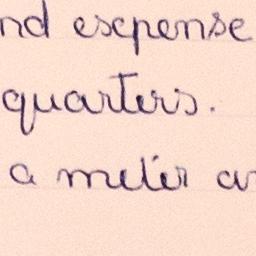 nd expense
quarters.
a meter a